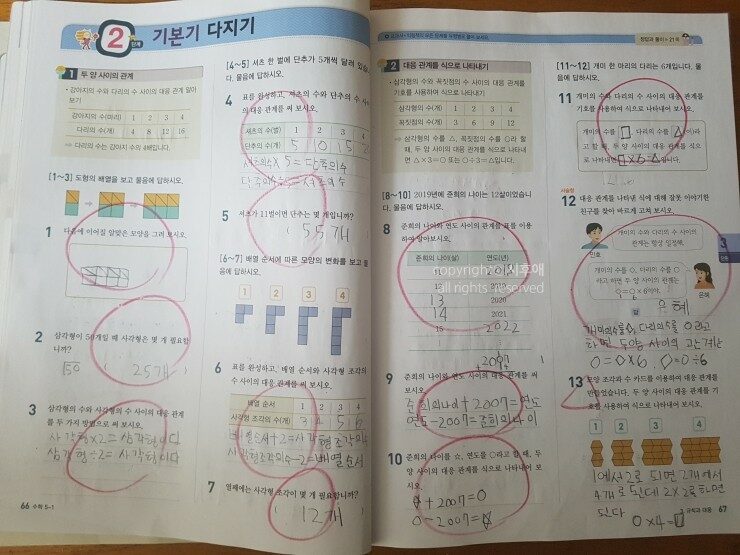 2 단계 기본기 다지기
1 두 양 사이의 관계
· 강아지의 수와 다리의 수 사이의 대응 관계 알아
보기
강아지의 수(마리) 1 2 3 4
다리의 수(개) 4 8 12 16
⇒ 다리의 수는 강아지 수의 4배입니다.
[1~3] 도형의 배열을 보고 물음에 답하시오.
1 다음에 이어질 알맞은 모양을 그려 보시오.
2 삼각형이 50개일 때 사각형은 몇 개 필요합
니까?
( 25개 )
3 삼각형의 수와 사각형의 수 사이의 대응 관계
를 두 가지 방법으로 써 보시오.
사각형×2=삼각형이다
삼각형÷2=사각형이다
66 수학 5-1
[4~5] 셔츠 한 벌에 단추가 5개씩 달려 있습니
다. 물음에 답하시오.
4 표를 완성하고, 셔츠의 수와 단추의 수 사
이의 대응 관계를 써 보시오.
셔츠의 수(벌) 1 2 3 4
단추의 수(개) 5 10 15
셔츠의수×5=단추의수
단추의수÷5=셔츠의수
5 셔츠가 11벌이면 단추는 몇 개입니까?
( 55개 )
[6~7] 배열 순서에 따른 모양의 변화를 보고 물
음에 답하시오.
1 2 3 4
6 표를 완성하고, 배열 순서와 사각형 조각의
수 사이의 대응 관계를 써 보시오.
배열 순서 1 2 3 4
사각형 조각의 수(개) 3 4 5 6
배열순서+2=사각형조각의수
사각형조각의수-2=배열순서
7 열째에는 사각형 조각이 몇 개 필요합니까?
( 12개 )
2 대응 관계를 식으로 나타내기
· 삼각형의 수와 꼭짓점의 수 사이의 대응 관계를
기호를 사용하여 식으로 나타내기
삼각형의 수(개) 1 2 3 4
꼭짓점의 수(개) 3 6 9 12
⇒ 삼각형의 수를 △, 꼭짓점의 수를 ○라 할
때, 두 양 사이의 대응 관계를 식으로 나타내
면 △×3=○ 또는 ○÷3=△입니다.
[8~10] 2019년에 준희의 나이는 12살이었습니
다. 물음에 답하시오.
8 준희의 나이와 연도 사이의 관계를 표를 이용
하여 알아보시오.
준희의 나이(살) 연도(년)
12 2019
13 2020
14 2021
15 2022
+2007
9 준희의 나이와 연도 사이의 대응 관계를 써
보시오.
준희의나이+2007=연도
연도-2007=준희의나이
10 준희의 나이를 ☆, 연도를 ○라고 할 때, 두
양 사이의 대응 관계를 식으로 나타내어 보시
오.
☆+2007=○
○-2007=☆
정답과 풀이 21쪽
[11~12] 개미 한 마리의 다리는 6개입니다. 물
음에 답하시오.
11 개미의 수와 다리의 수 사이의 대응 관계를
기호를 사용하여 식으로 나타내어 보시오.
개미의 수를 □, 다리의 수를 △(이)라
고 할 때, 두 양 사이의 대응 관계를 식으
로 나타내면 □×6=△입니다.
서술형
12 대응 관계를 나타낸 식에 대해 잘못 이야기한
친구를 찾아 바르게 고쳐 보시오.
개미의 수와 다리의 수 사이의
관계는 항상 일정해.
민호
개미의 수를 ○, 다리의 수를 ◎
라고 하면 두 양 사이의 관계는
은혜
답 은혜
13 모양 조각과 수 카드를 이용하여 대응 관계를
만들었습니다. 두 양 사이의 대응 관계를 기
호를 사용하여 식으로 나타내어 보시오.
1 2 3 4
1에서 2로 되면 2개에서
4개로 되는데 2×2로 하면
된다
○×4=□
3 규칙과 대응 67
3
단원
copyright 시호애
all rights reserved